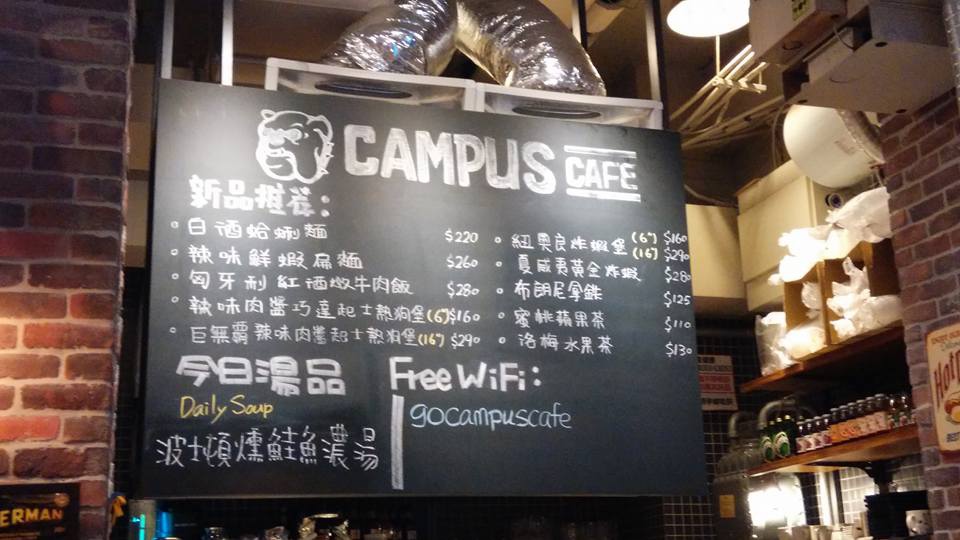 CAMPUS CAFE
新品推荐:
白酒蛤蜊麵 $220
辣味鮮蝦扁麵 $260
匈牙利紅酒燉牛肉飯 $280
辣味肉醬巧達起士熱狗堡(6") $160
巨無霸辣味肉醬起士熱狗堡(16") $290
紐奧良炸蝦堡 (6") $160
(16") $290
夏威夷黃金炸蝦 $280
布朗尼拿鐵 $125
蜜桃蘋果茶 $110
洛梅水果茶 $130
今日湯品
Daily Soup
波士頓燻鮭魚濃湯
Free WiFi:
gocampuscafe
ERMAN